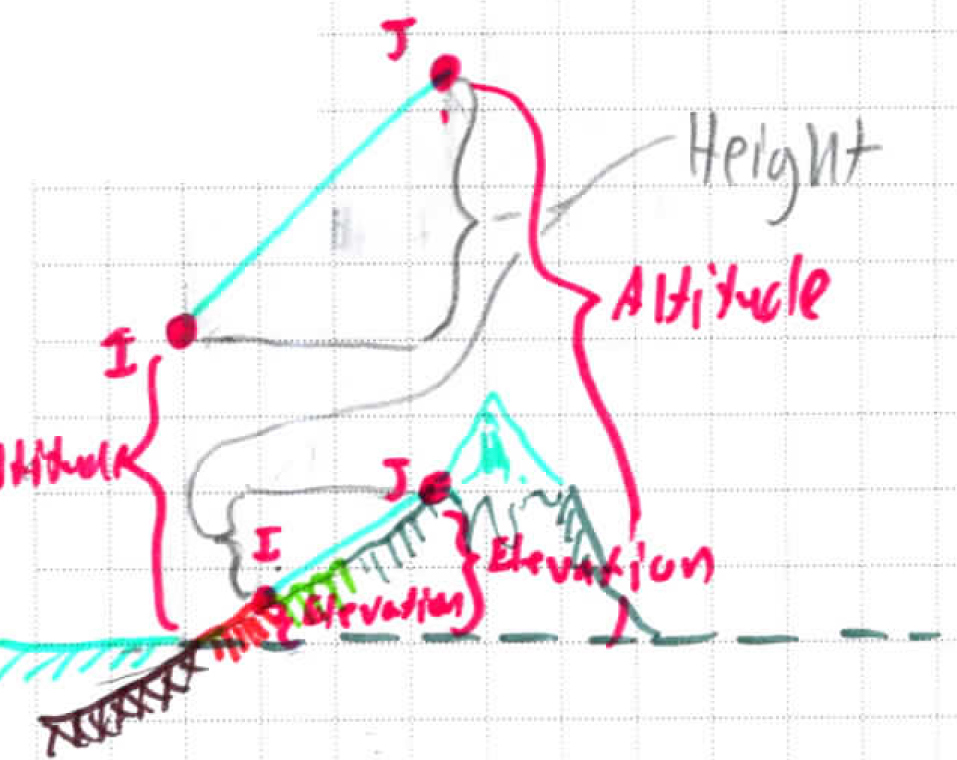 J
Height
Altitude
I
ltitude
J
I
Elevation
Elevation